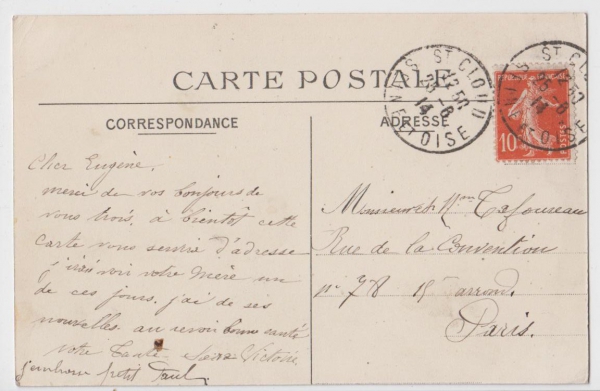 CARTE POSTALE
CORRESPONDANCE
ADRESSE
ST CLOUD
13 50
-6
14
SNE ET OISE
10
POSTES
Cher Eugène,
merci de vos bonjours de
vous trois, à bientôt cette
carte vous servira d'adresse
j'irai voir votre mère un
de ces jours, j'ai de ses
nouvelles, au revoir bonne santé
votre Tante Victoire
petit Paul
Monsieur et Mme
Rue de la Convention
No 78 15 arrond.
Paris.